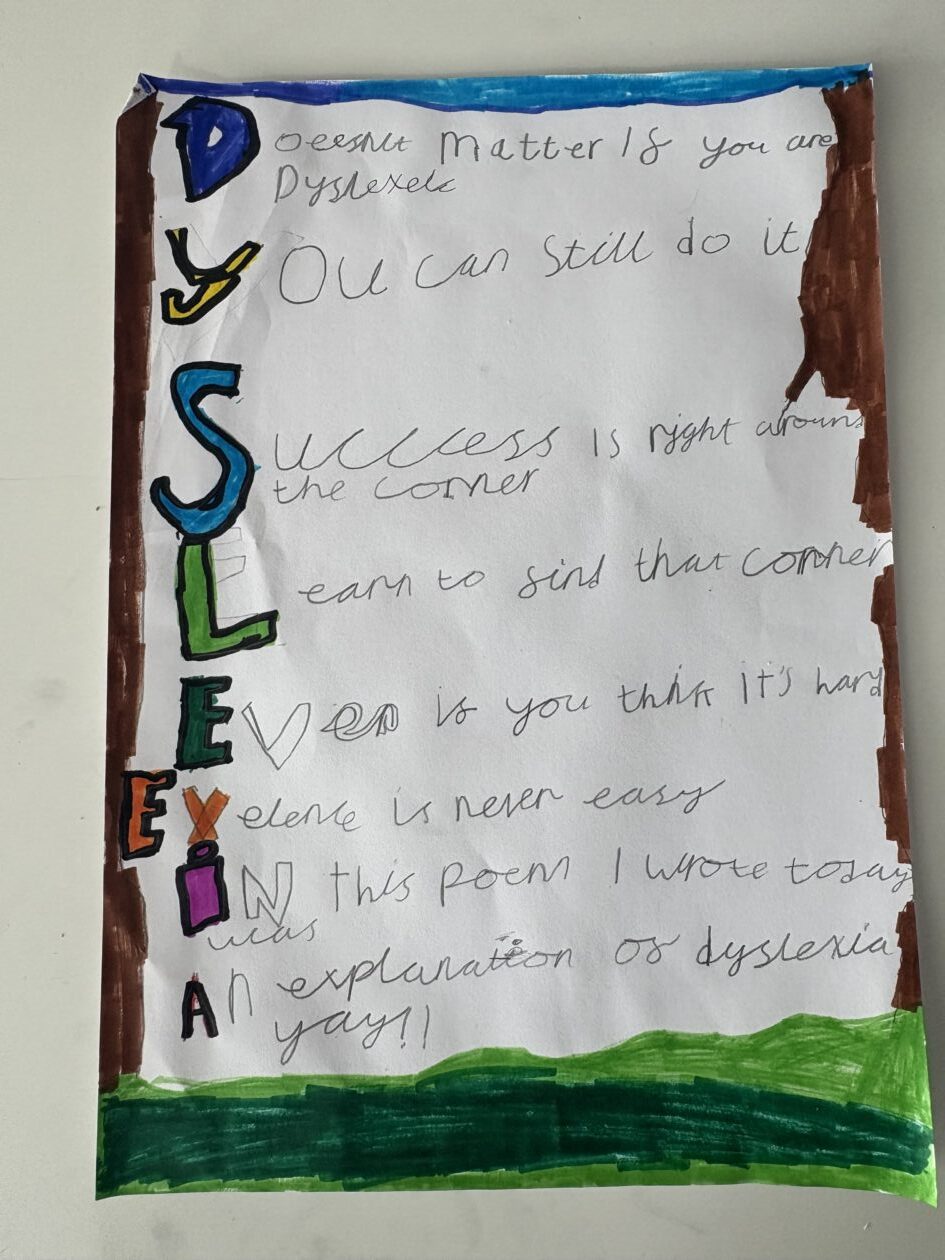 Doeesnt Matter If you are
Dyslexek
You can still do it
Success is right around
the corner
Learn to find that corner
Even if you think it's hard
EXelence is never easy
iN this poem I wrote today
was
An explanation of dyslexia
yay!!